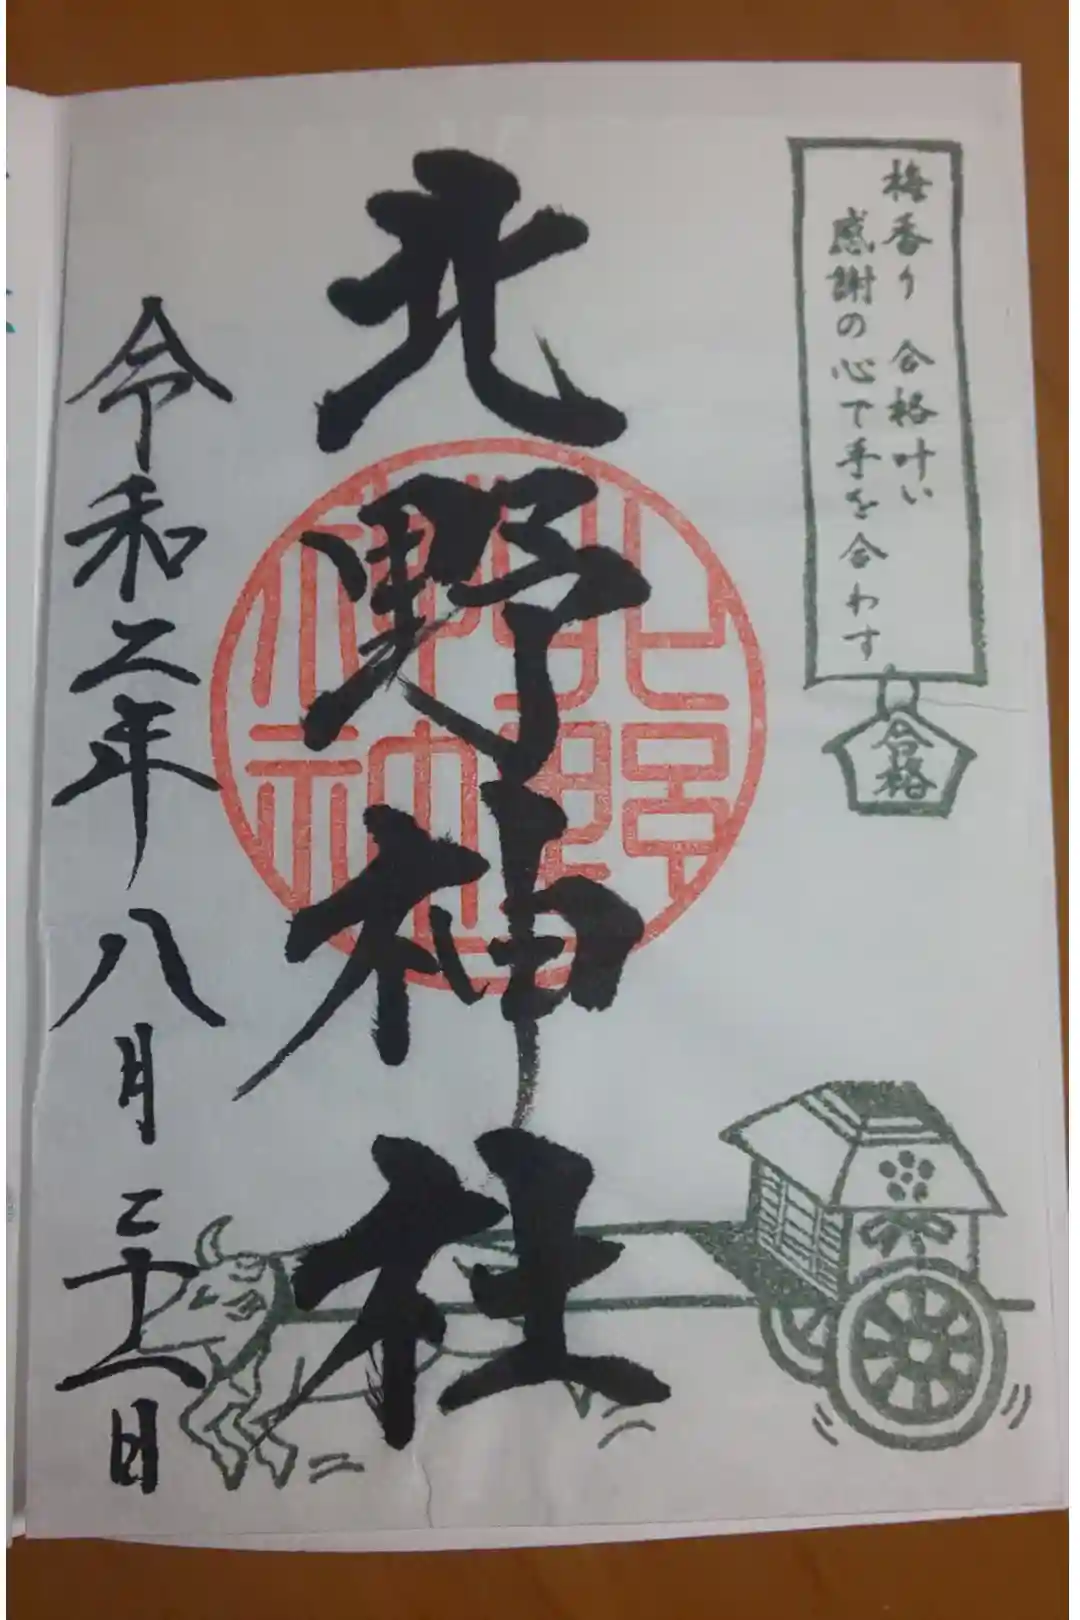 梅香り 合格叶い
感謝の心で手を合わす
合格
北野神社
令和二年八月二十八日